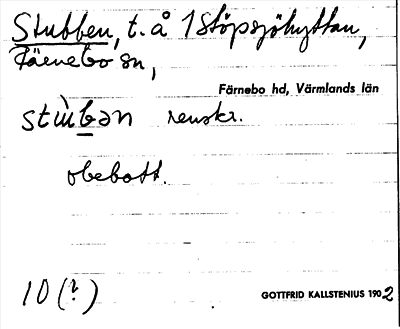 Stubben, t. å 1 Stöpsjöhyttan,
Färnebo sn,
Färnebo hd, Värmlands län
stùbən renskr.
obebott.
10 (?)
GOTTFRID KALLSTENIUS 1902